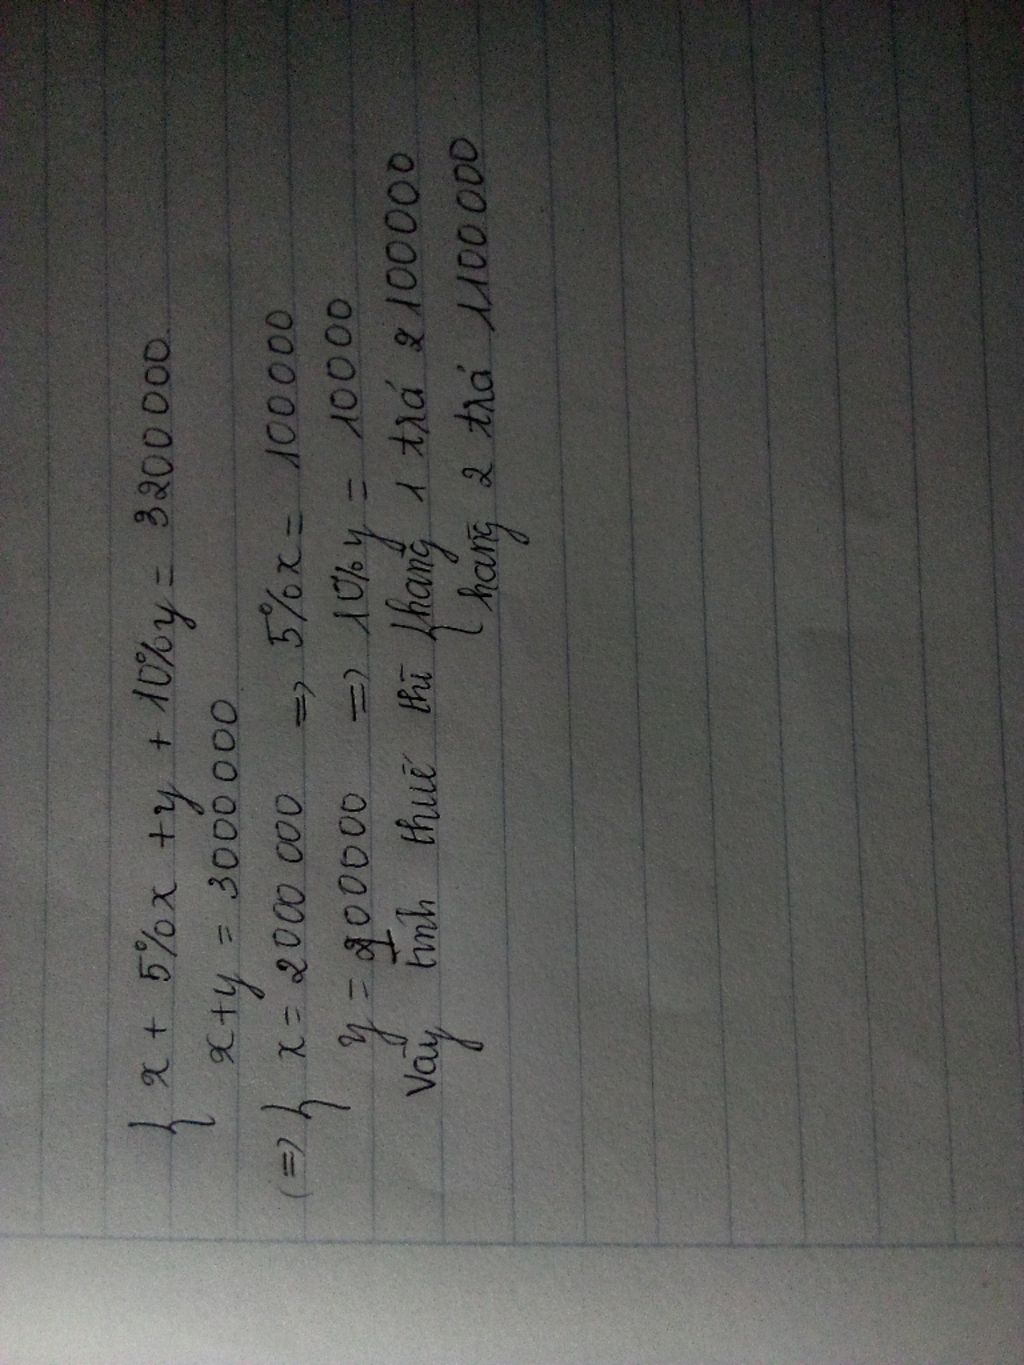 { x + 5%x + y + 10%y = 3200000
x+y = 3000 000
(=> { x = 2000 000 => 5%x = 100000
y = 100000 => 10%y = 10000
Vậy tính thuế thì { hàng 1 trả 2100000
hàng 2 trả 1100000